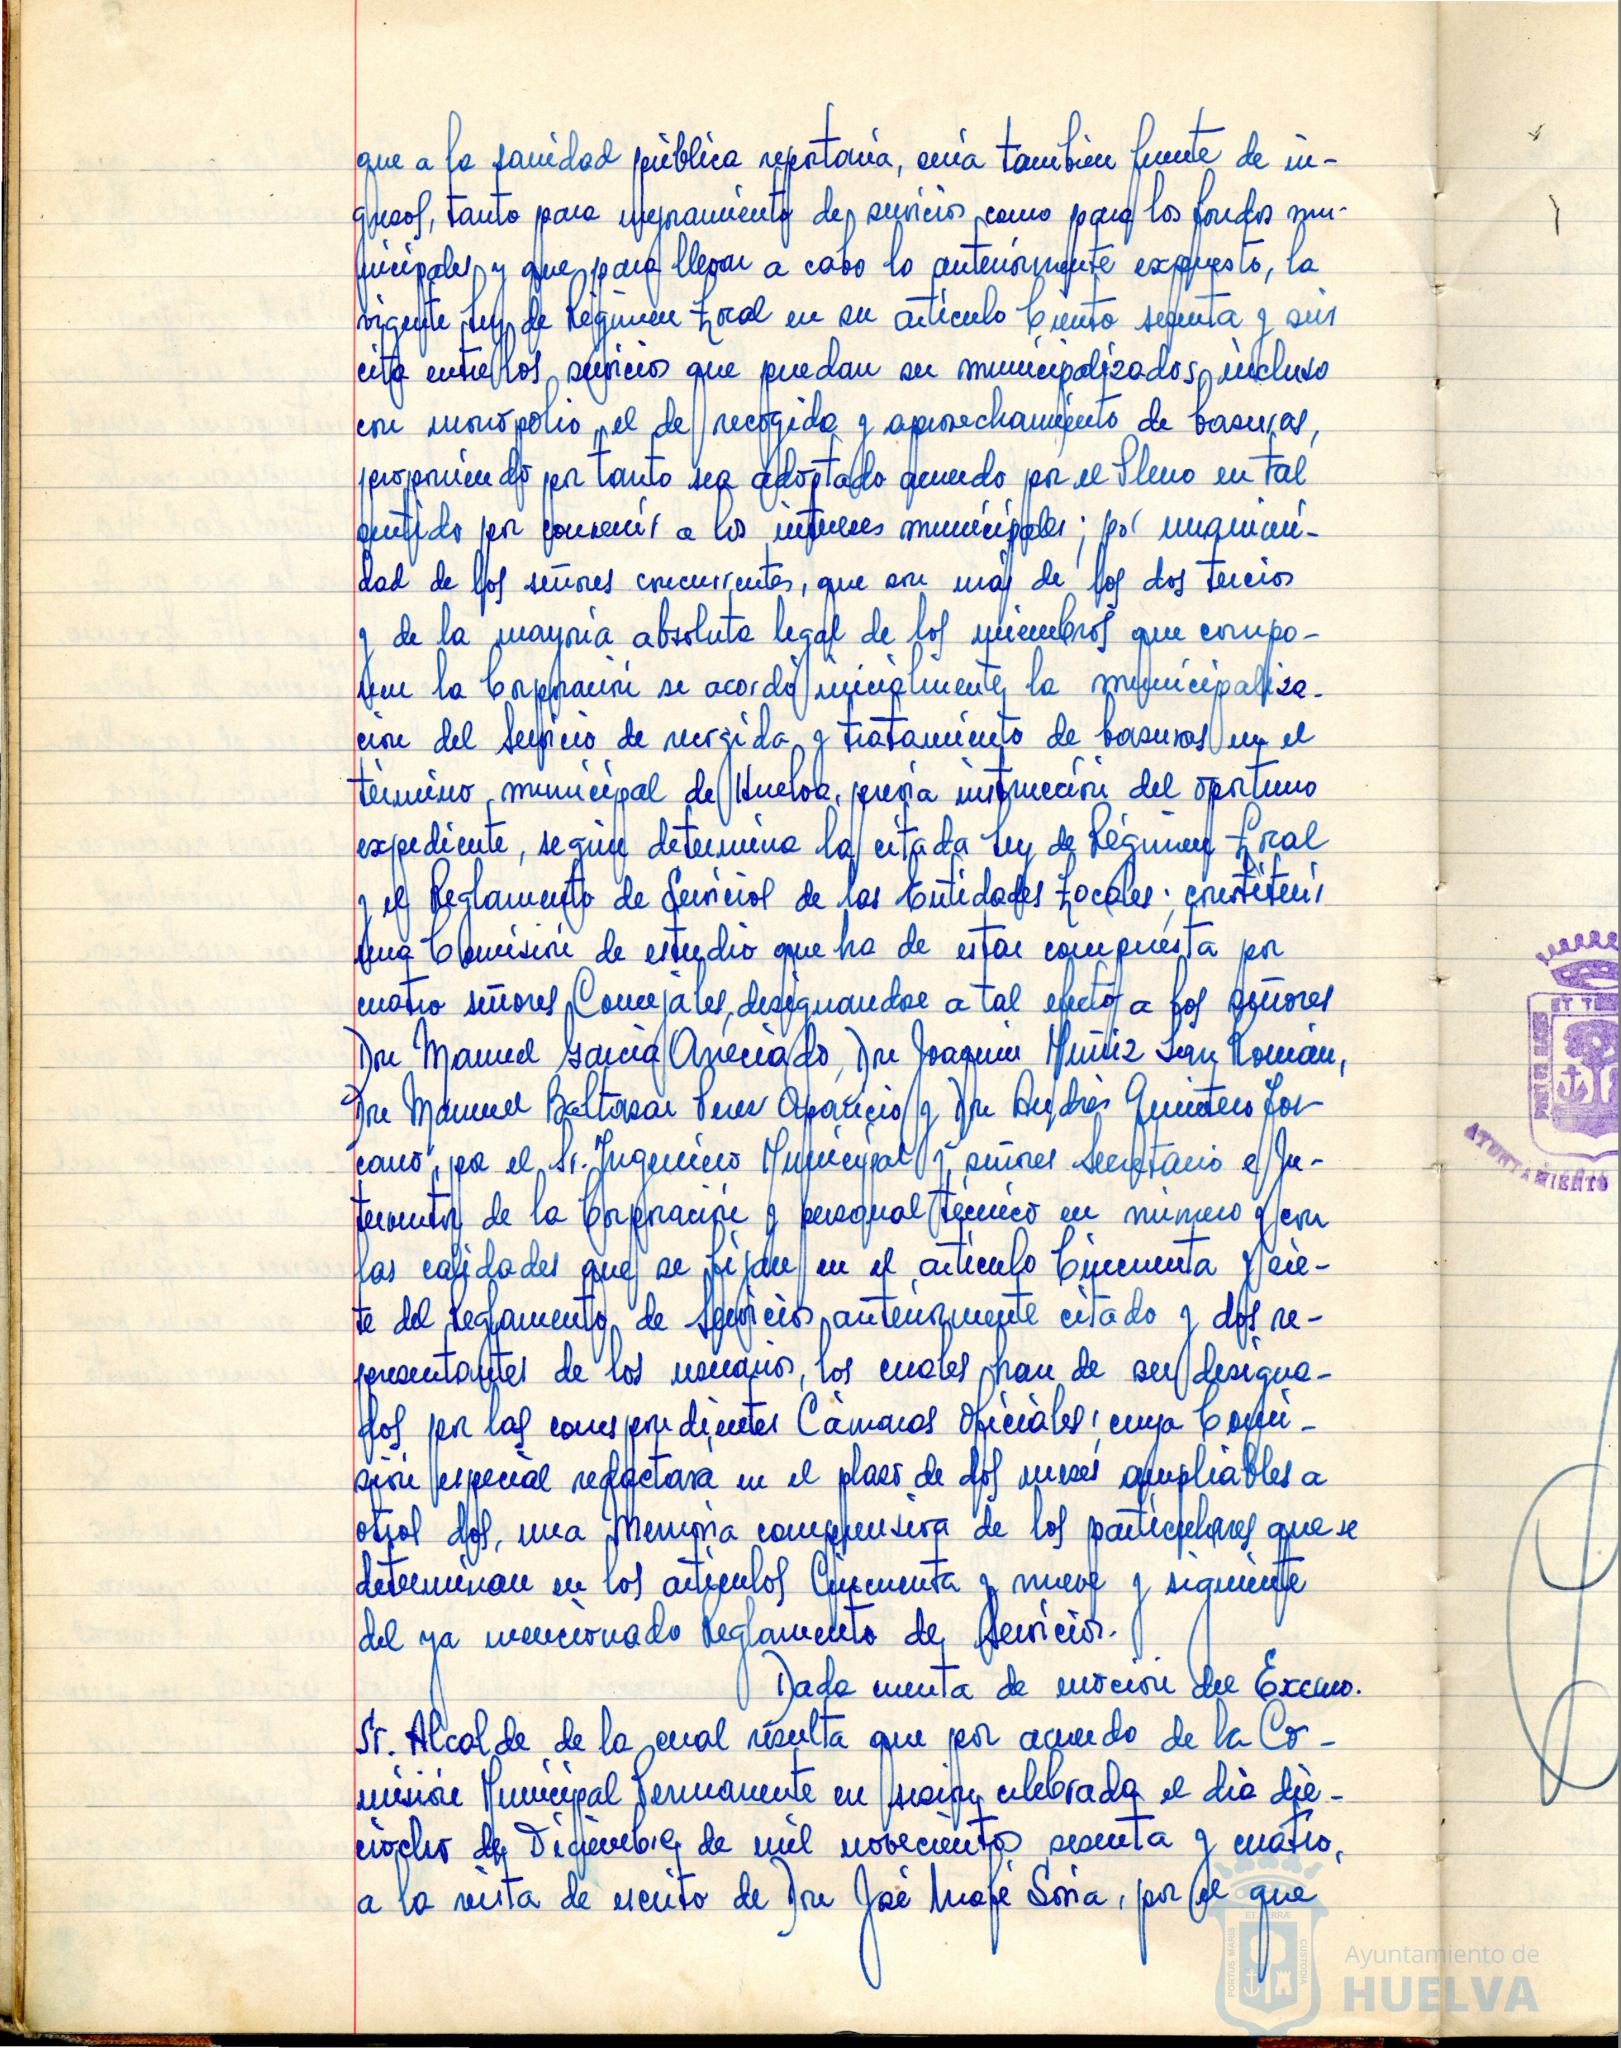 que a la sanidad pública reportaría, sería también fuente de in-
gresos, tanto para mejoramiento de servicios como para los fondos mu-
nicipales y que para llevar a cabo lo anteriormente expuesto, la
vigente Ley de Régimen Local en su artículo Ciento sesenta y seis
cita entre los servicios que puedan ser municipalizados, incluso
con monopolio, el de recogida y aprovechamiento de basuras,
proponiendo por tanto sea adoptado acuerdo por el Pleno en tal
sentido por convenir a los intereses municipales; por unanimi-
dad de los señores concurrentes, que son más de los dos tercios
y de la mayoría absoluta legal de los miembros que compo-
nen la Corporación se acordó inicialmente la municipaliza-
ción del Servicio de recogida y tratamiento de basuras en el
término municipal de Huelva, previa instrucción del oportuno
expediente, según determina la citada Ley de Régimen Local
y el Reglamento de Servicios de las Entidades Locales; constituir
una Comisión de estudio que ha de estar compuesta por
cuatro señores Concejales, designandose a tal efecto a los señores
Don Manuel García Arreciado, Don Joaquín Muñiz San Román,
Don Manuel Baltasar Perez Aparicio y Don Andrés Quintero Tos-
cano, por el Sr. Ingeniero Municipal y señores Secretario e In-
terventor de la Corporación y personal técnico en número y con
las calidades que se fijan en el artículo Cincuenta y sie-
te del Reglamento de Servicios anteriormente citado y dos re-
presentantes de los usuarios, los cuales han de ser designa-
dos por las correspondientes Cámaras Oficiales; cuya Comi-
sión especial redactara en el plazo de dos meses ampliables a
otros dos, una Memoria comprensiva de los particulares que se
determinan en los artículos Cincuenta y nueve y siguiente
del ya mencionado Reglamento de Servicios.
Dada cuenta de moción del Excmo.
Sr. Alcalde de la cual resulta que por acuerdo de la Co-
misión Municipal Permanente en sesión celebrada el día die-
ciocho de Diciembre de mil novecientos sesenta y cuatro,
a la vista de escrito de Don José Mafé Soria, por el que
AYUNTAMIENTO
PORTUS MARIS
ET TERRÆ
CUSTODIA
Ayuntamiento de
HUELVA